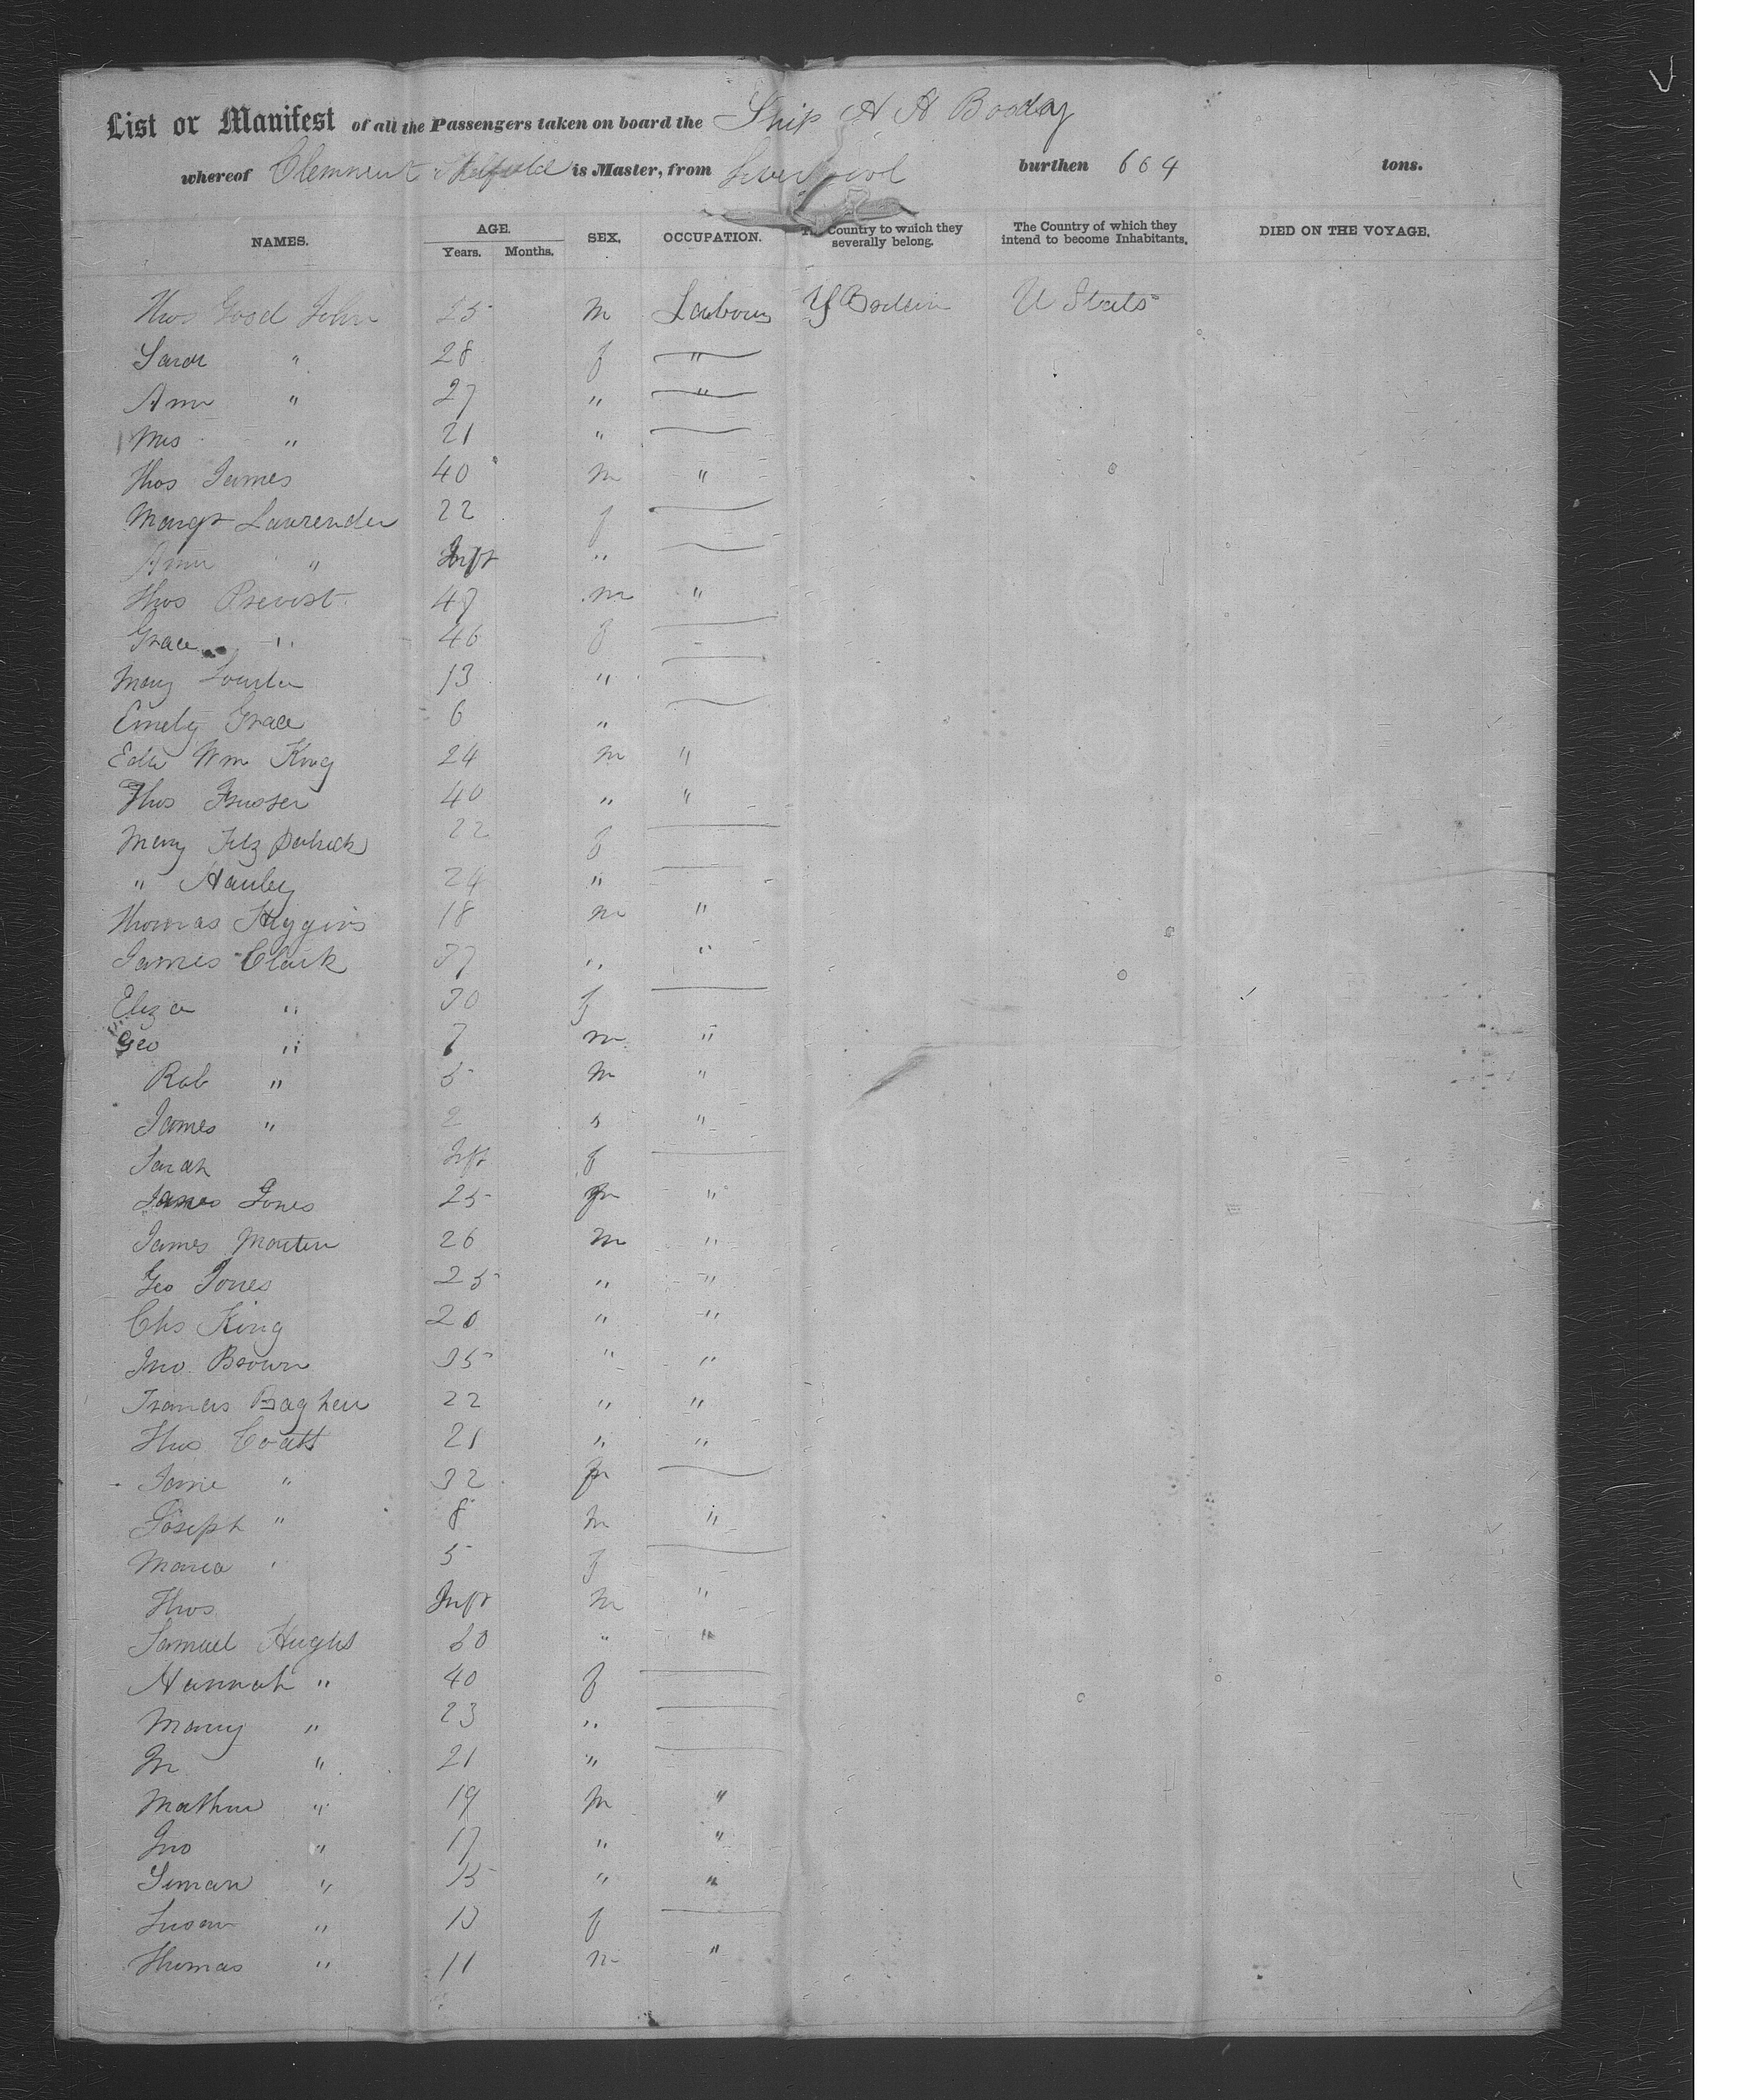 List or Manifest of all the Passengers taken on board the Ship A A Booday
whereof Clemment is Master, from Liverpool burthen 664 tons.
NAMES. AGE. Years. Months. SEX. OCCUPATION. The Country to which they severally belong. The Country of which they intend to become Inhabitants. DIED ON THE VOYAGE.
Thos Good John 25 m Labourer G Brittain U States
Sarah " 28 f "
Ann " 27 " "
Mrs " 21 "
Thos James 40 m "
Margt Lavrender 22 f
Ann " Inft "
Thos Prevost 47 m "
Grace " 46 f
Mary Louisa 13 "
Emely Grace 6 "
Edw Wm King 24 m "
Thos 40 " "
Mary Fitz Patrick 22 f
" Hanley 24 "
Thomas Higgins 18 m "
James Clark 37 " "
Eliza " 30 f
Geo " 7 m "
Rob " 5 m "
James " 2 " "
Sarah Inft f
James Jones 25 m "
James Martin 26 m "
Geo Jones 25 " "
Chs King 20 " "
Jno Brown 35 " "
Francis 22 " "
Thos Coatt 21 " "
Jane " 32 f
Joseph " 8 m "
Maria " 5 f
Thos Inft m "
Samuel Hughs 50 " "
Hannah " 40 f
Mary " 23 "
M " 21 "
Mathew " 19 m "
Jno " 17 " "
Siman " 15 " "
Susan " 13 f
Thomas " 11 m "